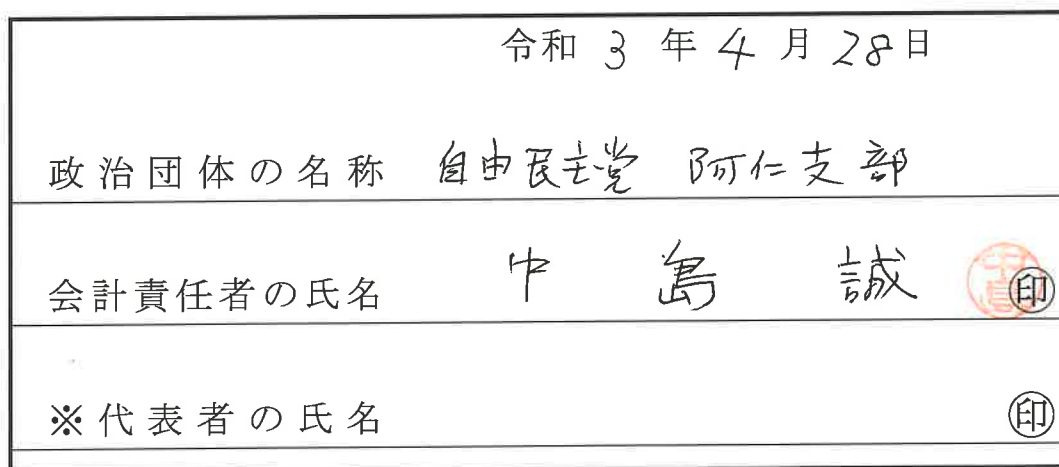 令和 3 年 4 月 28日
政治団体の名称 自由民主党 阿仁支部
会計責任者の氏名 中島 誠 ㊞
※代表者の氏名 ㊞